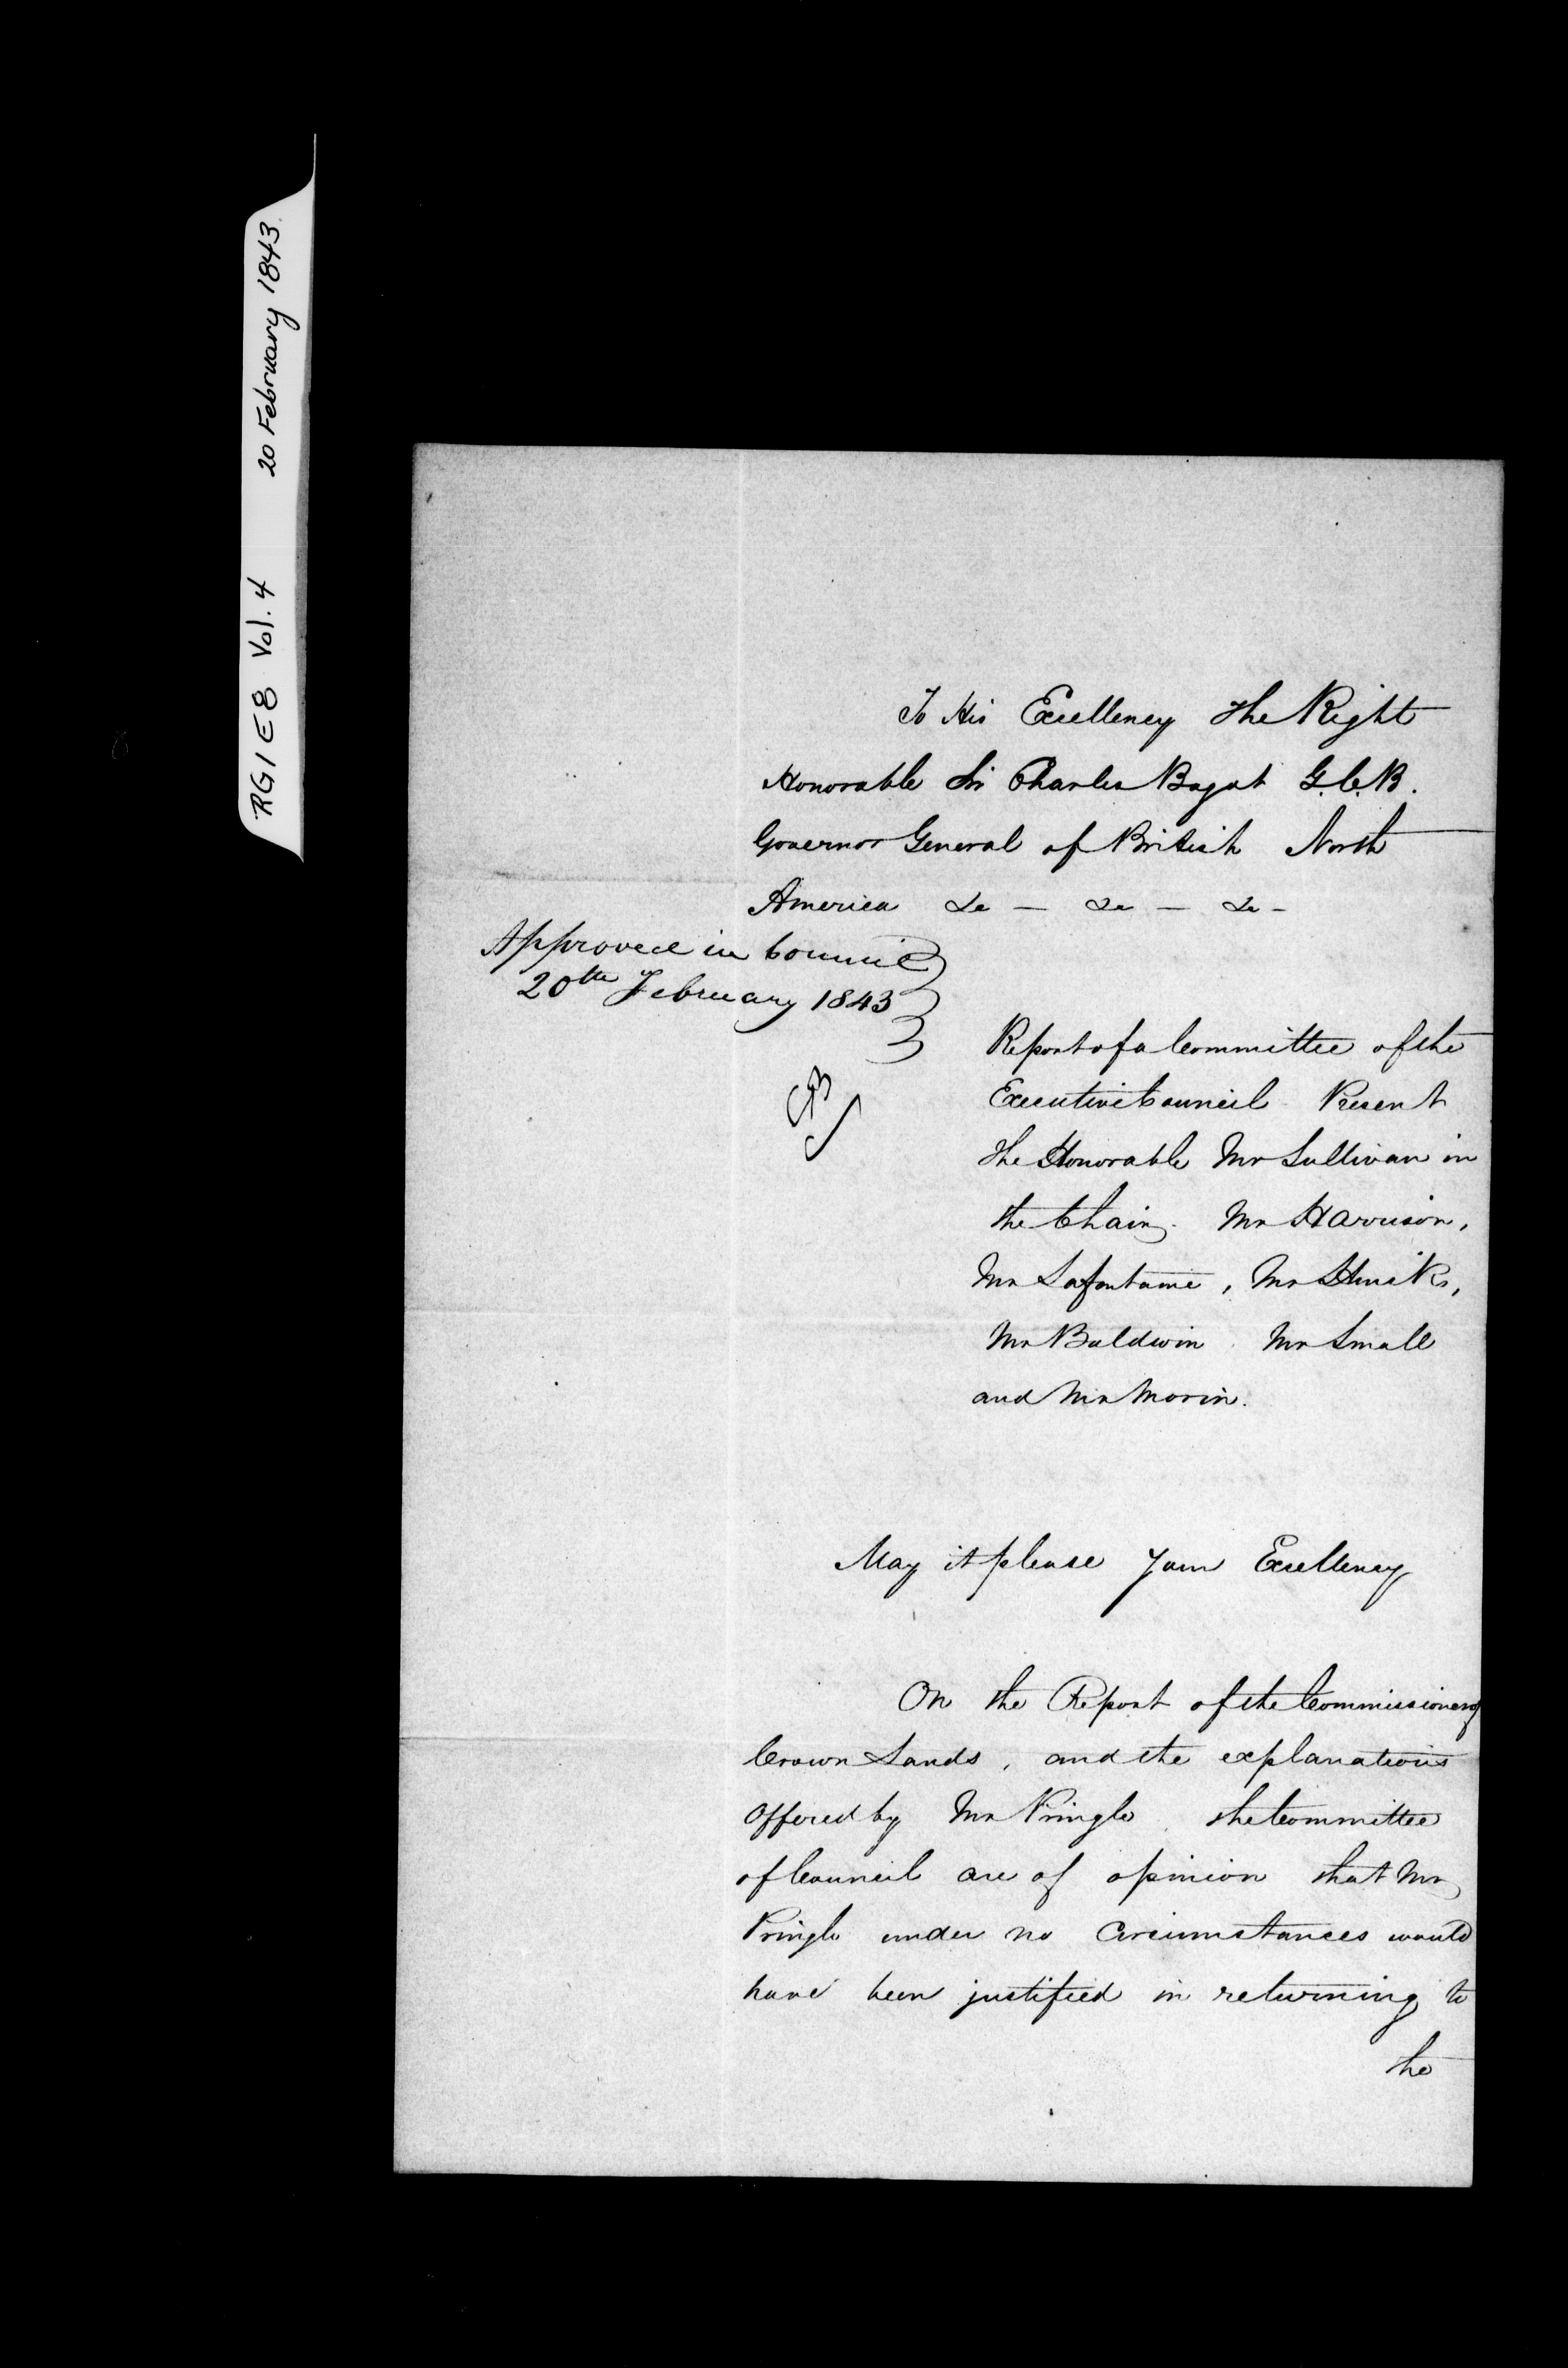 RG1 E8 Vol. 4 20 February 1843.
To His Excellency The Right
Honorable Sir Charles Bagot G.C.B.
Governor General of British North
America &c — &c — &c -
Approved in Council
20th February 1843
CB
Report of a Committee of the
Executive Council Present
The Honorable Mr Sullivan in
the Chair, Mr Harrison,
Mr Lafontaine, Mr Hincks,
Mr Baldwin, Mr Small
and Mr Morin.
May it please Your Excellency
On the Report of the Commissioner of
Crown Lands, and the explanations
offered by Mr Pringle, the Committee
of Council are of opinion that Mr
Pringle under no Circumstances would
have been justified in returning to
the